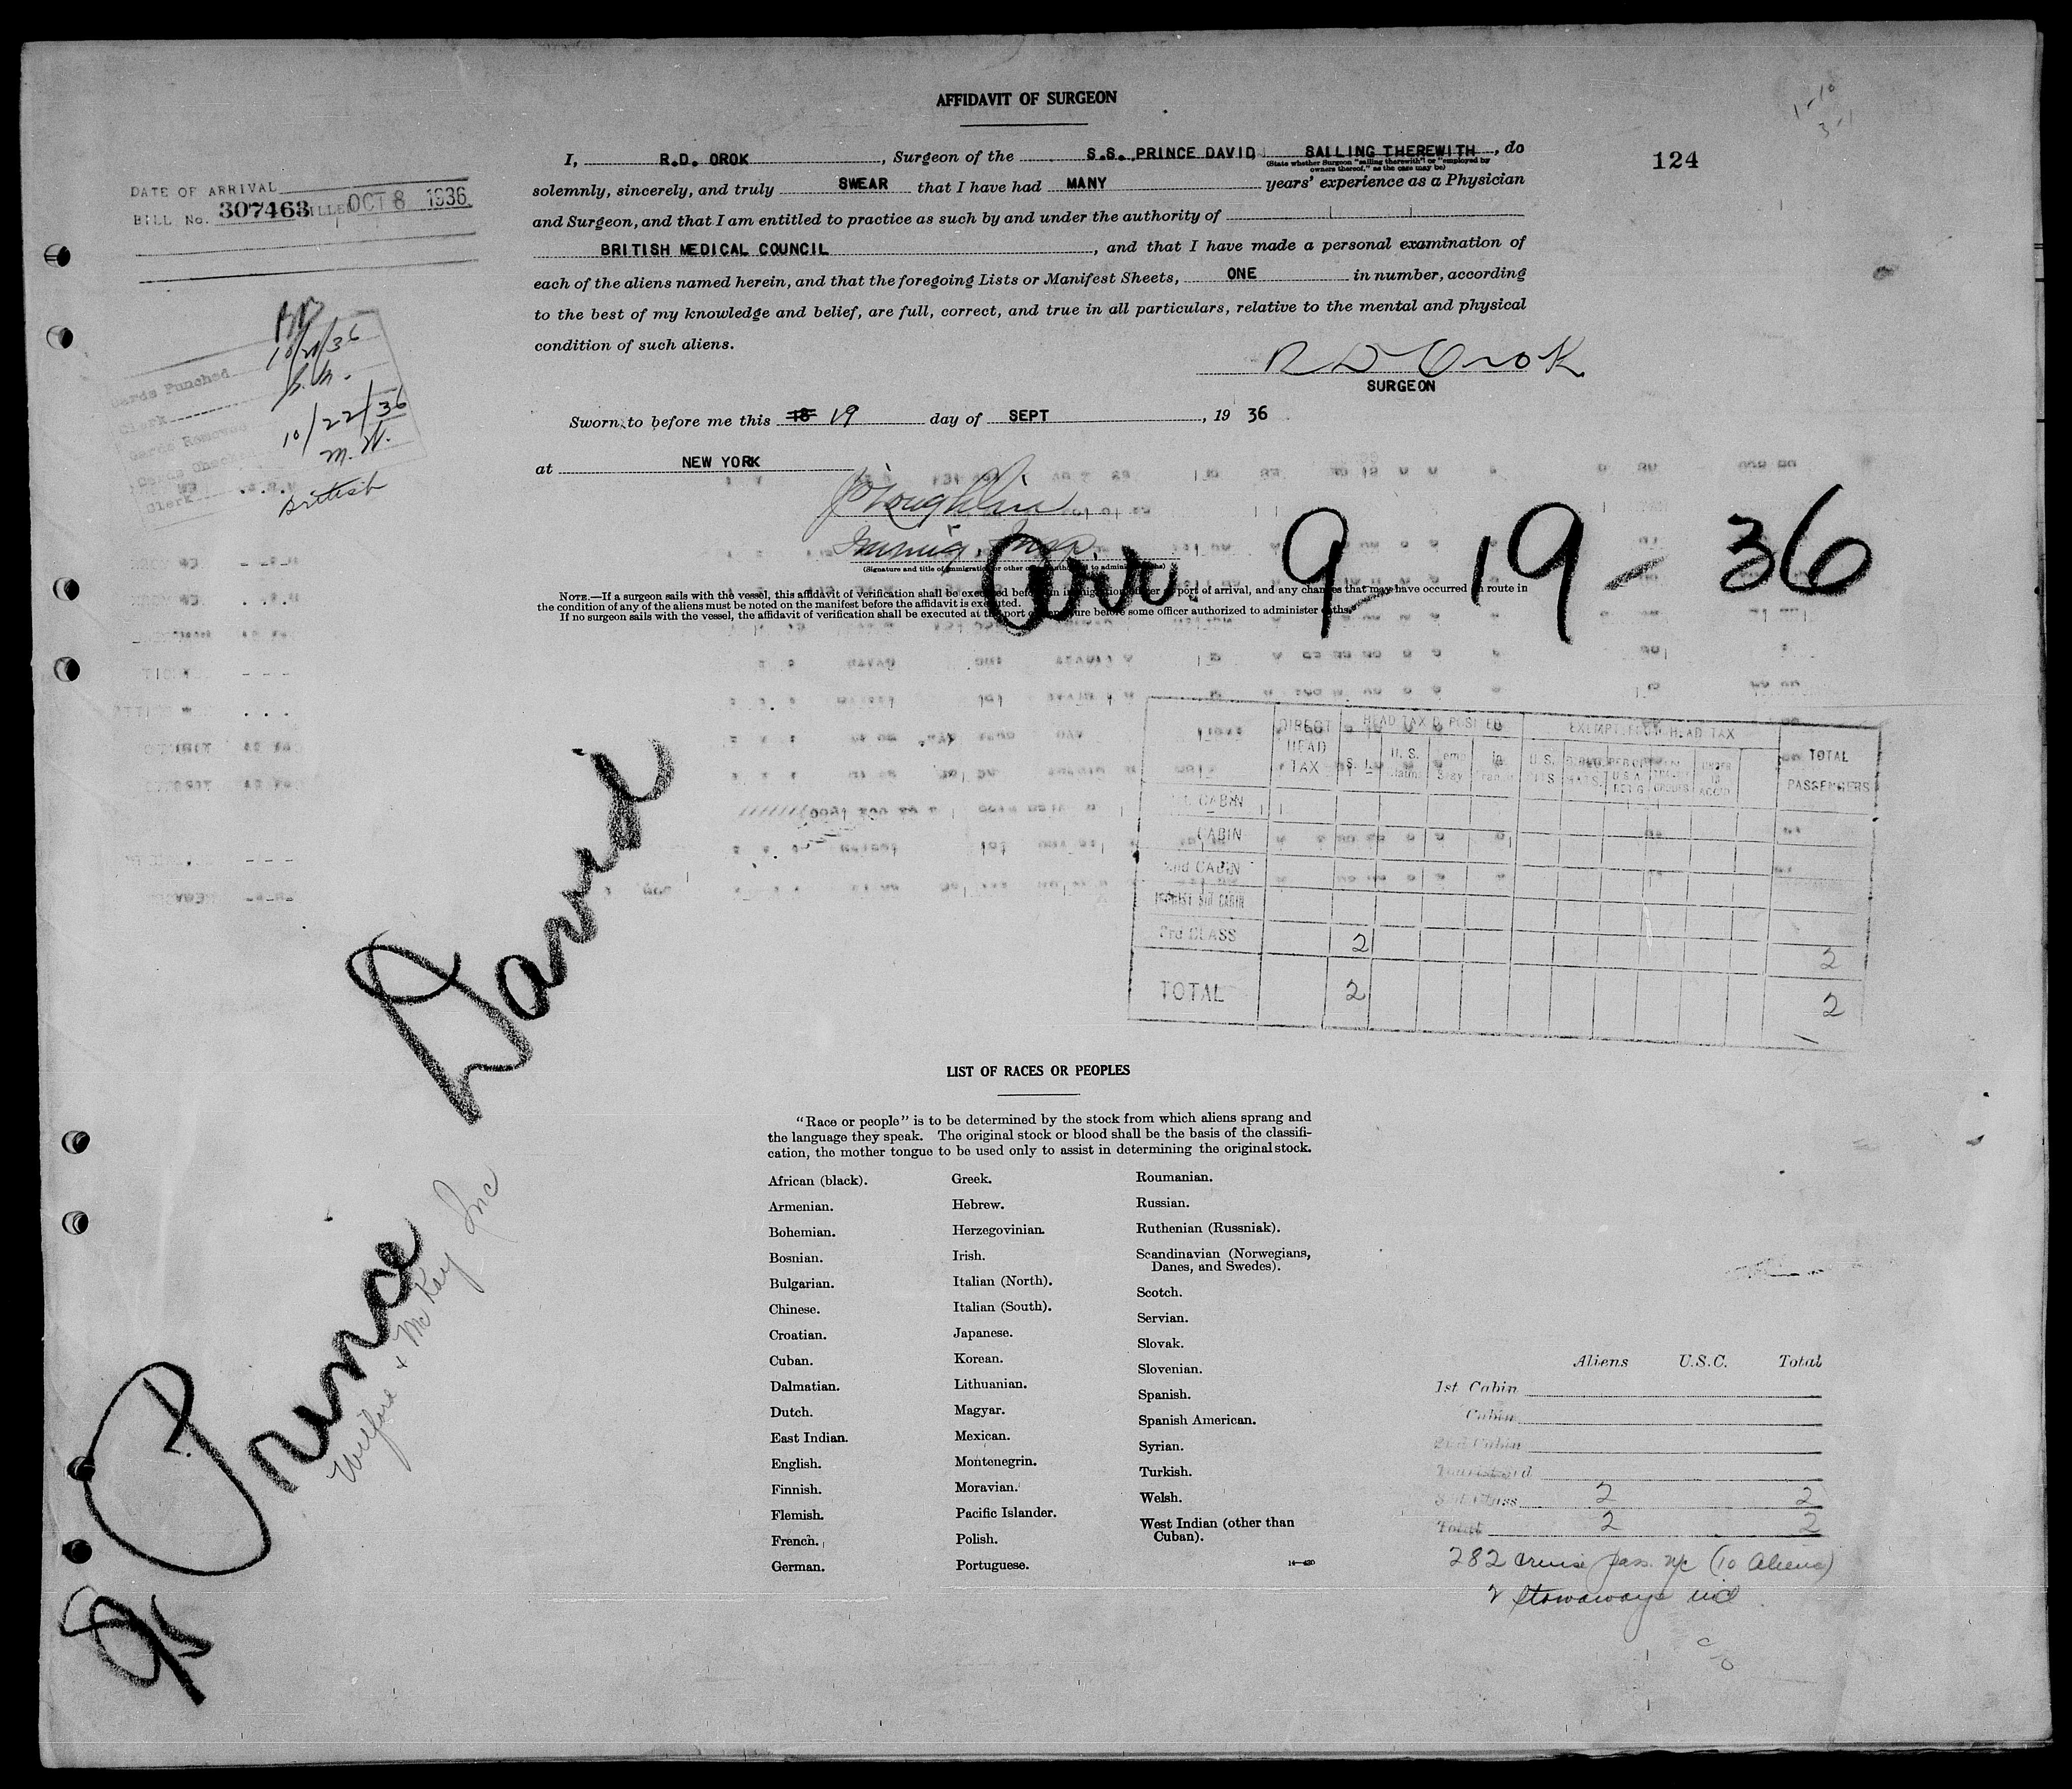 AFFIDAVIT OF SURGEON
I, R.D. OROK, Surgeon of the S.S. PRINCE DAVID SAILING THEREWITH, do
(State whether Surgeon "sailing therewith" or "employed by
owners thereof," as the case may be)
124
solemnly, sincerely, and truly SWEAR that I have had MANY years' experience as a Physician
and Surgeon, and that I am entitled to practice as such by and under the authority of
BRITISH MEDICAL COUNCIL, and that I have made a personal examination of
each of the aliens named herein, and that the foregoing Lists or Manifest Sheets, ONE in number, according
to the best of my knowledge and belief, are full, correct, and true in all particulars, relative to the mental and physical
condition of such aliens.
R D Orok
SURGEON
Sworn to before me this 18 19 day of SEPT, 19 36
at NEW YORK
Immig. Insp.
(Signature and title of immigration or other officer authorized to administer oaths)
NOTE.—If a surgeon sails with the vessel, this affidavit of verification shall be executed before an immigration officer at port of arrival, and any changes that may have occurred en route in
the condition of any of the aliens must be noted on the manifest before the affidavit is executed.
If no surgeon sails with the vessel, the affidavit of verification shall be executed at the port of departure before some officer authorized to administer oaths.
Arr. 9-19-36
DATE OF ARRIVAL
BILL No. 307463 BILLED OCT 8 1936
Cards Punched 10/21/36
Clerk
10/22/36
M.W.
Clerk
British
Prince David
DIRECT HEAD TAX
HEAD TAX DEPOSITED
EXEMPT FROM HEAD TAX
TOTAL PASSENGERS
CABIN
2nd CABIN
3rd CLASS 2 2
TOTAL 2 2
LIST OF RACES OR PEOPLES
"Race or people" is to be determined by the stock from which aliens sprang and
the language they speak. The original stock or blood shall be the basis of the classifi-
cation, the mother tongue to be used only to assist in determining the original stock.
African (black).
Armenian.
Bohemian.
Bosnian.
Bulgarian.
Chinese.
Croatian.
Cuban.
Dalmatian.
Dutch.
East Indian.
English.
Finnish.
Flemish.
French.
German.
Greek.
Hebrew.
Herzegovinian.
Irish.
Italian (North).
Italian (South).
Japanese.
Korean.
Lithuanian.
Magyar.
Mexican.
Montenegrin.
Moravian.
Pacific Islander.
Polish.
Portuguese.
Roumanian.
Russian.
Ruthenian (Russniak).
Scandinavian (Norwegians,
Danes, and Swedes).
Scotch.
Servian.
Slovak.
Slovenian.
Spanish.
Spanish American.
Syrian.
Turkish.
Welsh.
West Indian (other than
Cuban).
Aliens U.S.C. Total
1st Cabin
Cabin
2nd Cabin
Tourist 3rd
3rd Class 2 2
Total 2 2
282 cruise pass. (10 Aliens)
2 Stowaways